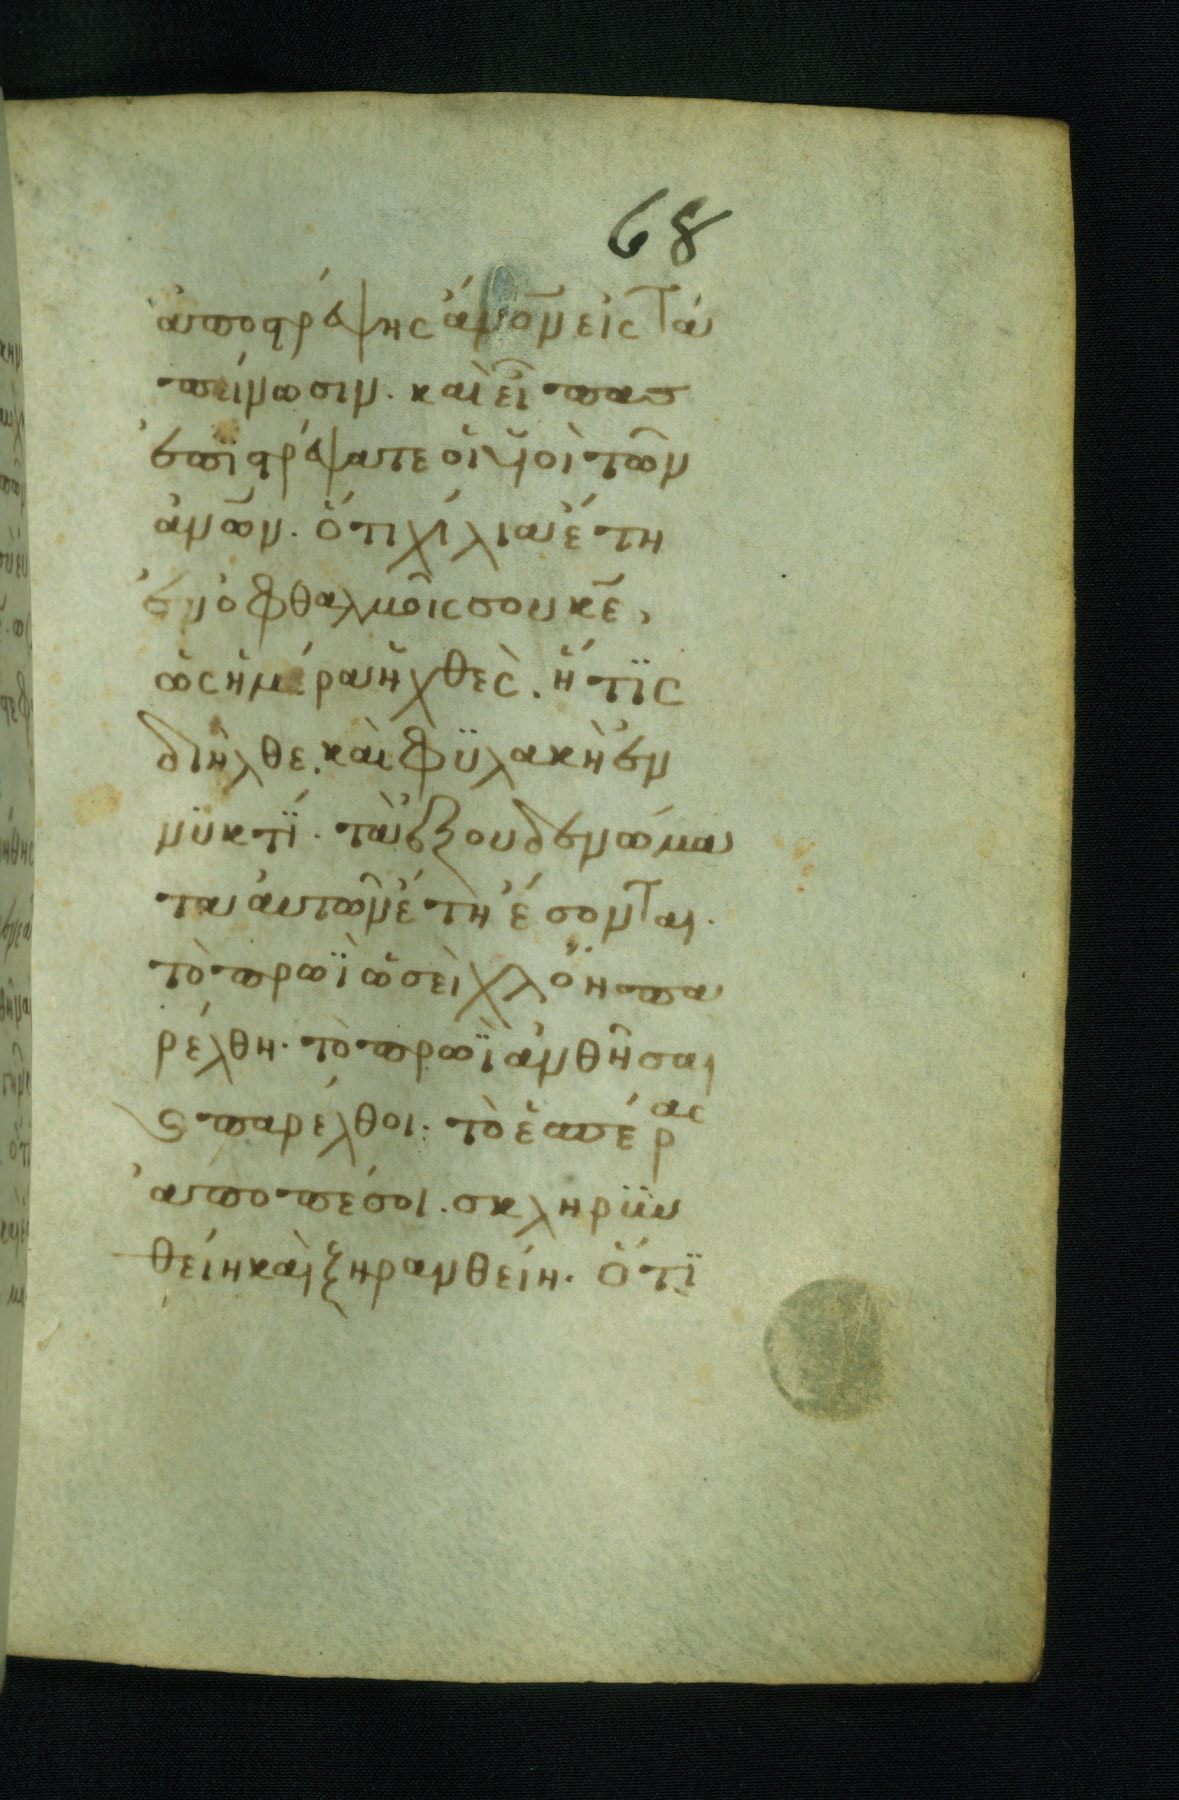 68
ἀποστρέψης ἄνον εἰς τα
πείνωσιν· καὶ εἶπασ
ἐπϊστρέψατε οἱ ὑιοὶ τῶν
ἀνῶν· ὅτι χίλια ἔτη
ἐν ὀφθαλμοῖς σου κε,
ὡς ἡμέρα ἡ χθὲς. ἥτϊς
διῆλθε. καὶ φϋλακὴ ἐν
νϋκτΐ· τὰ ἐξουδενώμα
τα αὐτῶν ἔτη ἔσονται·
τὸ πρωῒ ὡσεὶ χλόη πα
ρέλθη· τὸ πρωῒ ἀνθῆσαι
κ παρέλθοι· τὸ ἑσπέρας
ἀποπέσοι· σκληρϋν
θείη καὶ ξηρανθείη· ὅτϊ